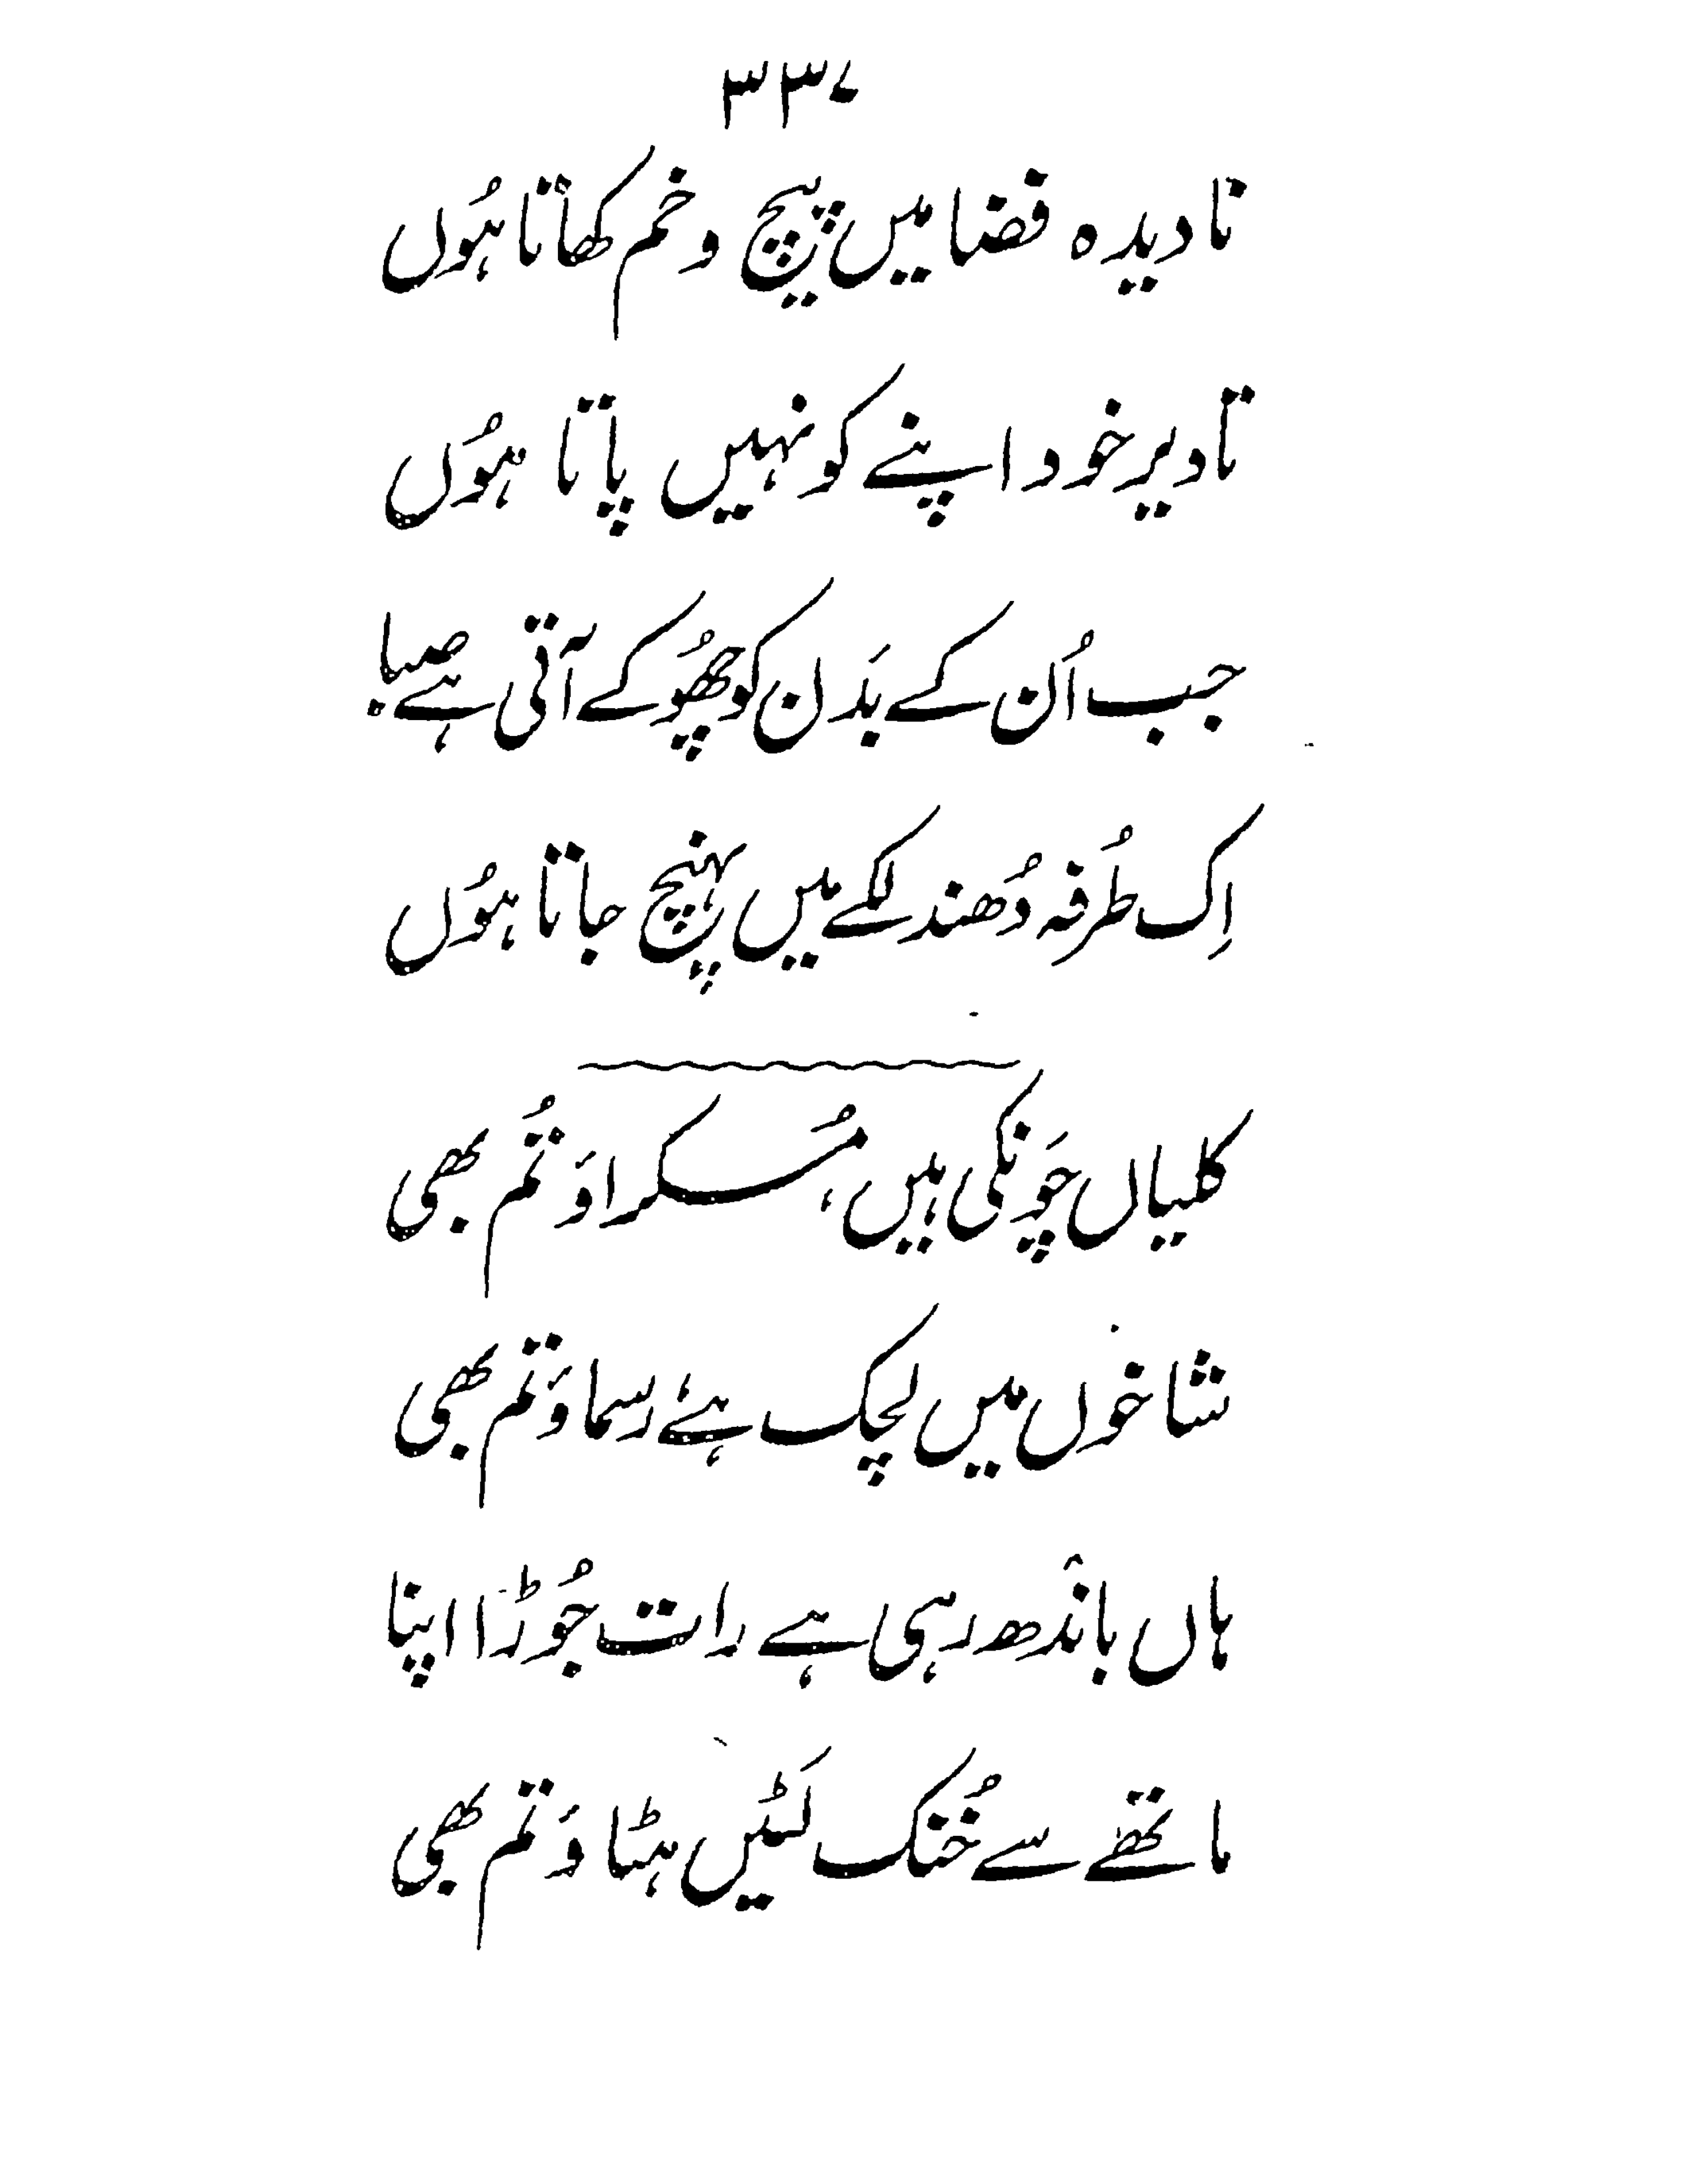 ۳۳۷
نادیدہ فضا میں پیچ و خم کھاتا ہُوں
تا دیر خود اپنے کو نہیں پاتا ہُوں
جب اُن کے بَدَن کو چھُو کے آتی ہے صبا
اِک طُرفہ دُھندلکے میں پہنچ جاتا ہُوں
کلیاں چَونکی ہیں، مُسکراؤ تُم بھی
شاخوں میں لچک ہے، رسماؤ تم بھی
ہاں باندھ رہی ہے رات جُوڑا اپنا
ماتھے سے خُنک لَٹیں ہٹاؤ تم بھی